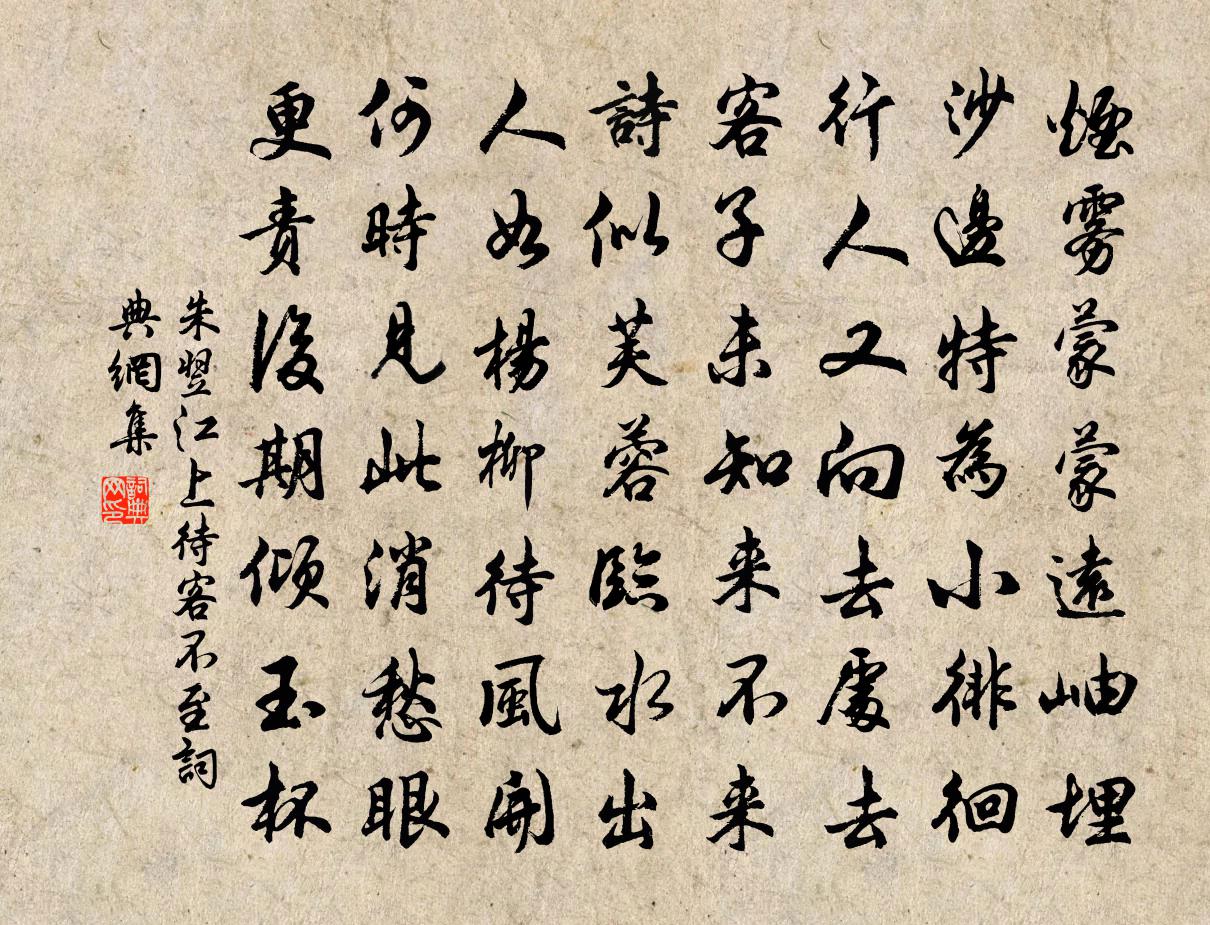 煙雾蒙蒙遠岫埋
沙邊特為小徘徊
行人又向去處去
客子未知来不来
詩似芙蓉臨水出
人如楊柳待風開
何時見此消愁眼
更責後期傾玉杯
朱翌江上待客不至詞
典網集
詞典
网印